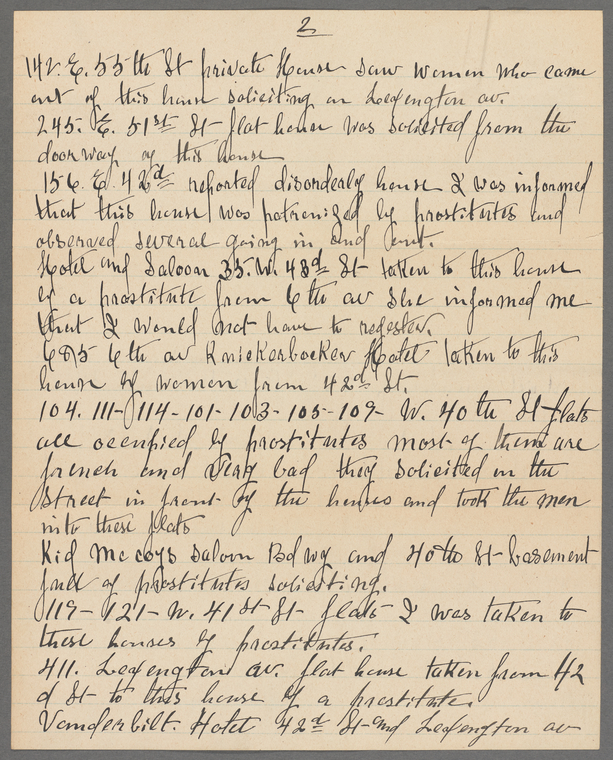 2
142. E. 55th St private House saw women who came
out of this house soliciting on Lexengton av.
245. E. 51st St flat house was solicited from the
doorway of this house
156. E. 42d reported disorderly house I was informed
that this house was patronized by prostitutes and
observed several going in and out.
Hotel and Saloon 35. W. 43d St taken to this house
by a prostitute from 6th av She informed me
that I would not have to regester.
6th av Knickerbocker Hotel taken to this
house by women from 42d St.
104. 111- 114- 101- 103- 105- 109- W. 40th St flats
all occupied by prostitutes most of them are
french and very bad they solicited on the
street in front of the houses and took the men
into these flats
Kid McCoys saloon Bdwy and 40th St basement
full of prostitutes soliciting.
119- 121- W. 41st St flats I was taken to
these houses by prostitutes.
411. Lexengton av. flat house taken from 42
d St to this house by a prostitute.
Vanderbilt. Hotel 42d St and Lexengton av